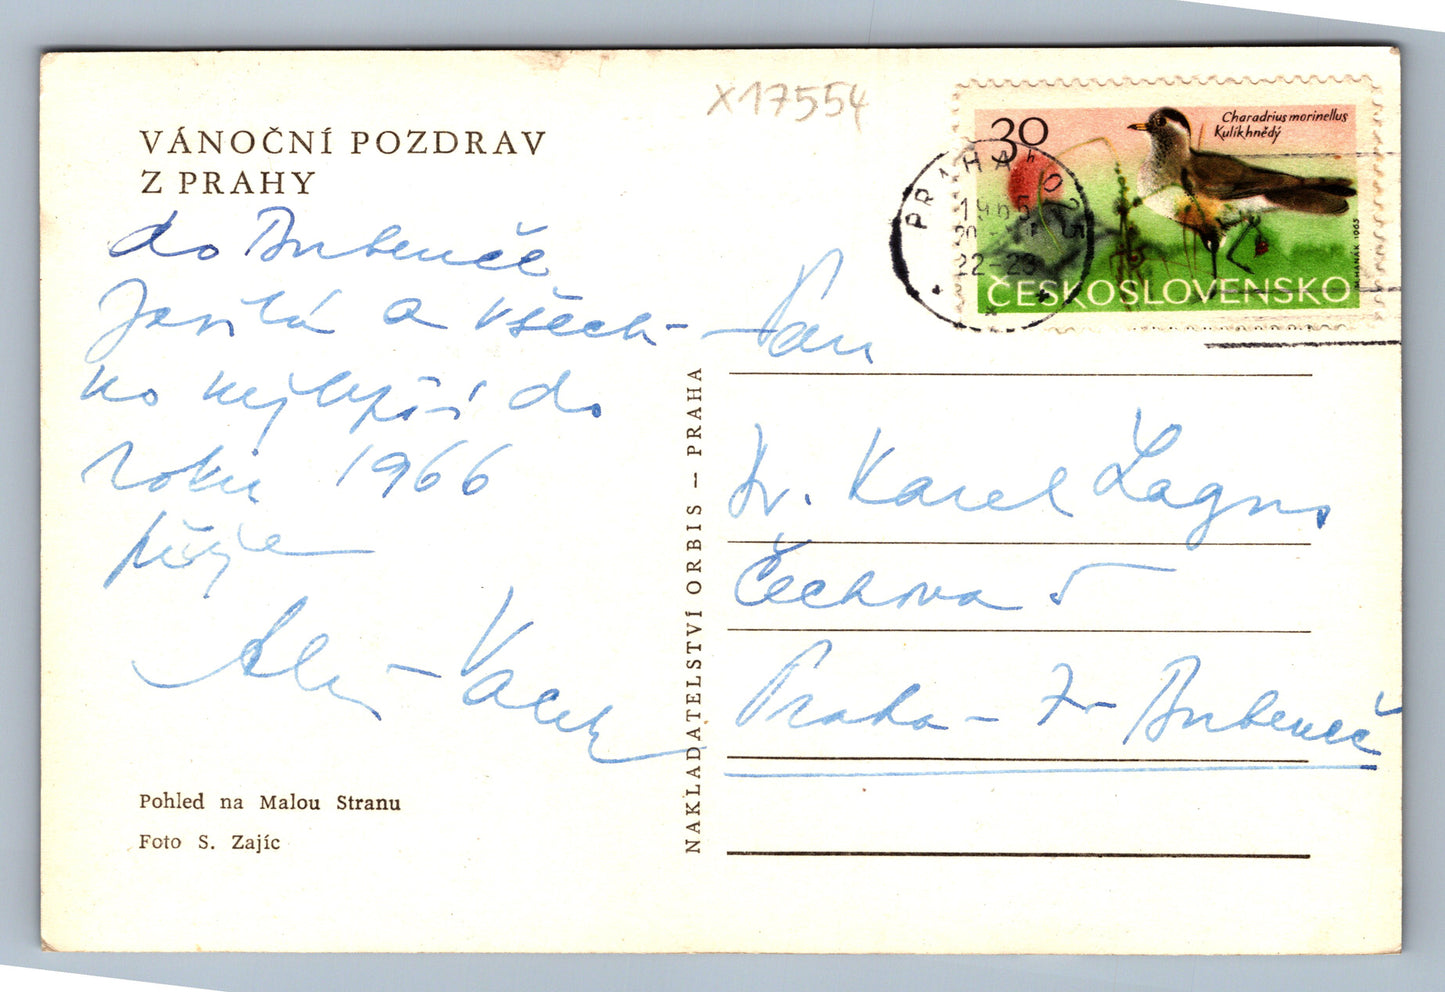 X17554
VÁNOČNÍ POZDRAV
Z PRAHY
do Bubenče
a všech-
no nejlepší do
roku 1966
přeje
Pohled na Malou Stranu
Foto S. Zajíc
NAKLADATELSTVÍ ORBIS — PRAHA
30
Charadrius morinellus
Kulík hnědý
ČESKOSLOVENSKO
PRAHA 025
1965
22-23
Pan
Dr. Karel Lagus
Čechova 5
Praha - 7 - Bubeneč